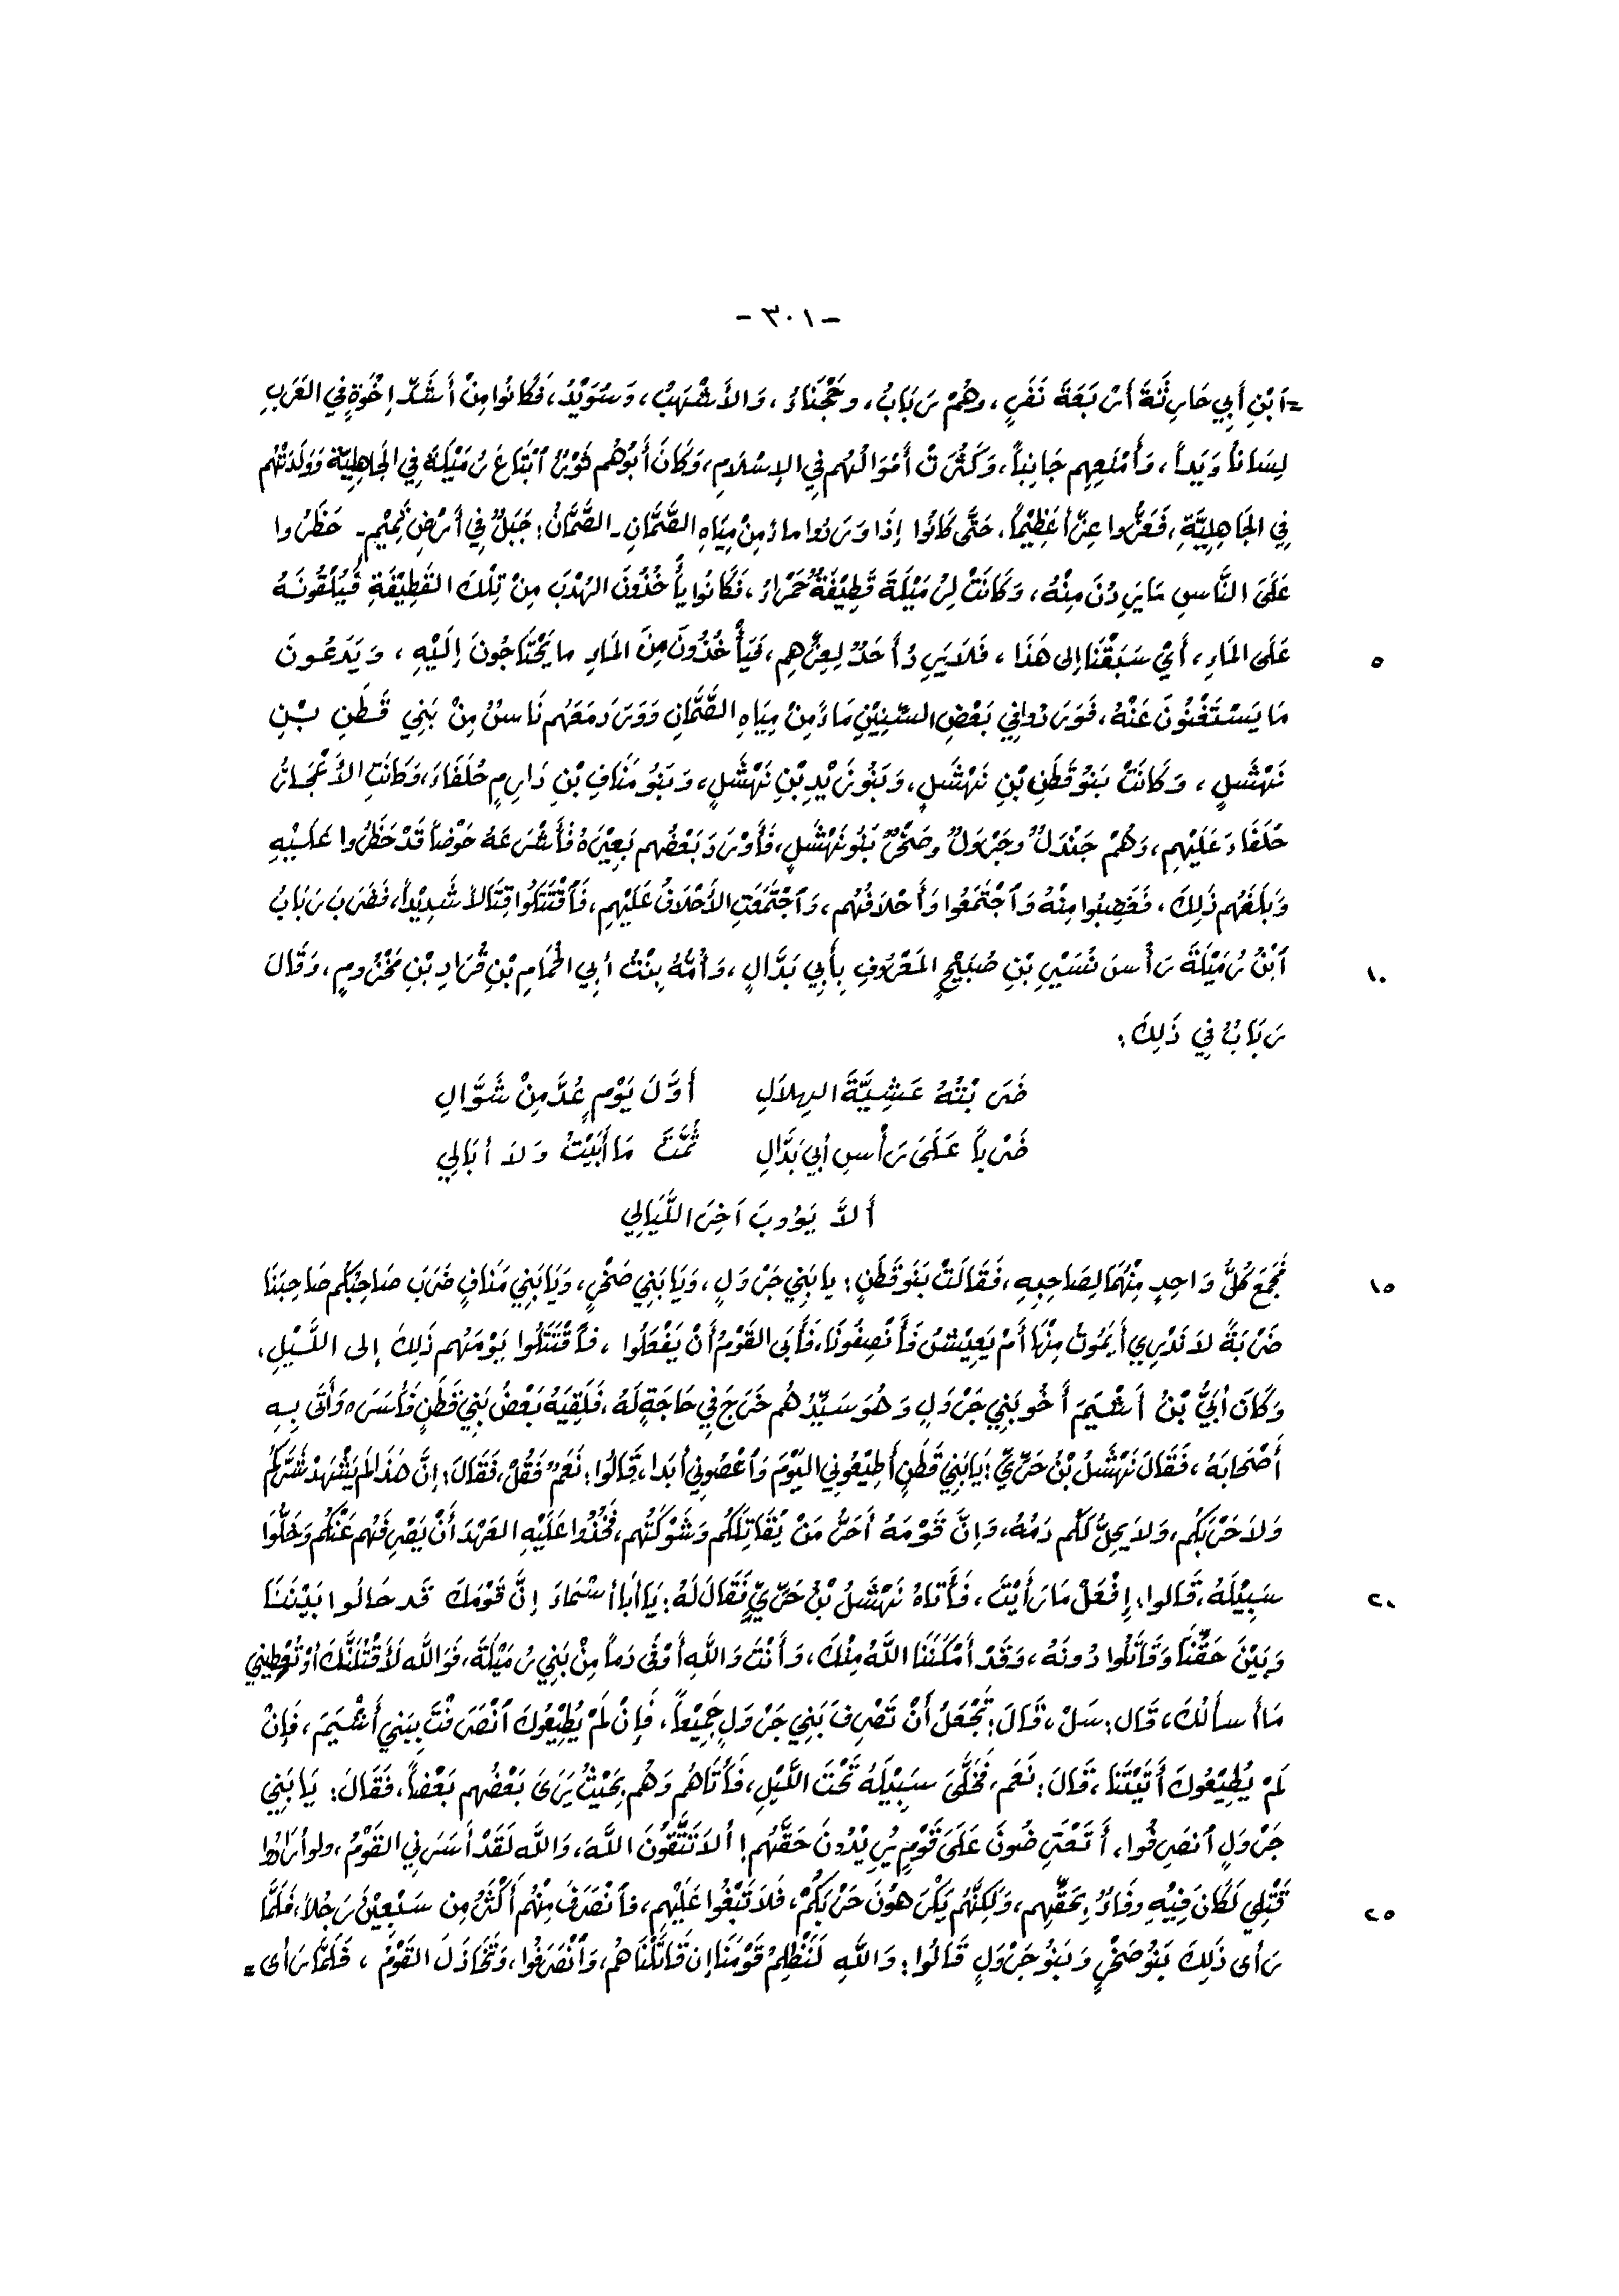 - ٣٠١ -
= ٱبْنِ أَبِي حَارِثَةَ أَرْبَعَةَ نَفَرٍ، وهُمْ رَبَابٌ، وحَجْنَاءُ، وَالأَشْهَبُ، وَسُوَيْدٌ، فَكَانُوا مِنْ أَشَدِّ إِخْوَةٍ فِي العَرَبِ
لِسَاناً وَيَداً، وَأَمْنَعِهِم جَانِباً، وَكَثُرَتْ أَمْوَالُهُم فِي الإِسْلَامِ، وَكَانَ أَبُوهُم ثَوْرٌ ٱبْتَاعَ رُمَيْلَةَ فِي الجَاهِلِيَّةِ وَوَلَدَتْهُم
فِي الجَاهِلِيَّةِ، فَعَزُّوا عِزّاً عَظِيْماً، حَتَّى كَانُوا إِذَا وَرَدُوا ماءً مِنْ مِيَاهِ الصَّمَّانِ ـ الصَّمَّانُ: جَبَلٌ فِي أَرْضِ تَمِيْمٍ ـ حَظَرُوا
عَلَى النَّاسِ مَا يَرِدُنَ مِنْهُ، وَكَانَتْ لِرُمَيْلَةَ قَطِيْفَةٌ حَمْرَاءُ، فَكَانُوا يَأْخُذُونَ الهُدْبَ مِنْ تِلْكَ القَطِيْفَةِ فَيُلْقُونَهُ
٥ عَلَى المَاءِ، أَيْ سَبَقْنَا إِلى هَذَا، فَلَا يَرِدُ أَحَدٌ لِعِزِّهِم، فَيَأْخُذُونَ مِنَ المَاءِ ما يَحْتَاجُونَ إِلَيْهِ، وَيَدَعُونَ
مَا يَسْتَغْنُونَ عَنْهُ، فَوَرَدُوا فِي بَعْضِ السِّنِيْنِ مَاءً مِنْ مِيَاهِ الصَّمَّانِ وَوَرَدَ مَعَهُم نَاسٌ مِنْ بَنِي قَطَنِ بْنِ
نَهْشَلٍ، وَكَانَتْ بَنُو قَطَنِ بْنِ نَهْشَلٍ، وَبَنُو زَيْدِ بْنِ نَهْشَلٍ، وَبَنُو مَنَافِ بْنِ دَارِمٍ حُلَفَاءَ، وَكَانَتِ الأَحْجَارُ
حُلَفَاءَ عَلَيْهِم، وَهُمْ جَنْدَلٌ وجَرْوَلٌ وصَخْرٌ بَنُو نَهْشَلٍ، فَأَوْرَدَ بَعْضُهُم بَعِيْرَهُ فَأَشْرَعَهُ حَوْضاً قَدْ حَظَرُوا عَلَيْهِ
وَبَلَغَهُم ذَلِكَ، فَغَضِبُوا مِنْهُ وَٱجْتَمَعُوا وَأَحْلَافُهُم، وَٱجْتَمَعَتِ الأَحْلَافُ عَلَيْهِم، فَٱقْتَتَلُوا قِتَالاً شَدِيْداً، فَضَرَبَ رَبَابُ
١٠ ٱبْنُ رُمَيْلَةَ رَأْسَ نُسَيْرِ بْنِ صُبَيْحٍ المَعْرُوفِ بِأَبِي بَدَّالٍ، وَأُمُّهُ بِنْتُ أبِي الحُمَامِ بْنِ قُرَادِ بْنِ مَخْزُومٍ، وَقَالَ
رَبَابٌ فِي ذَلِكَ:
ضَرَبْتُهُ عَشِيَّةَ الهِلَالِ أَوَّلَ يَوْمٍ عُدَّ مِنْ شَوَّالِ
ضَرْباً عَلَى رَأْسِ أبِي بَدَّالِ ثُمَّتَ مَا أَبَيْتُ وَلاَ أبَالِي
أَلاَّ يَؤُوبَ آخِرَ اللَّيَالِي
١٥ فَجَمَعَ كُلُّ وَاحِدٍ مِنْهُمَا لِصَاحِبِهِ، فَقَالَتْ بَنُو قَطَنٍ: يا بَنِي جَرْوَلٍ، وَيَا بَنِي صَخْرٍ، وَيَا بَنِي مَنَافٍ ضَرَبَ صَاحِبُكُم صَاحِبَنَا
ضَرْبَةً لاَ نَدْرِي أَيَمُوتُ مِنْهَا أَمْ يَعِيْشُ فَأَنْصِفُونَا، فَأَبَى القَوْمُ أَنْ يَفْعَلُوا، فَٱقْتَتَلُوا يَوْمَهُم ذَلِكَ إلى اللَّيْلِ،
وَكَانَ أبَيُّ بْنُ أَشْيَمَ أَخُو بَنِي جَرْوَلٍ وَهُوَ سَيِّدُهُم خَرَجَ فِي حَاجَةٍ لَهُ، فَلَقِيَهُ بَعْضُ بَنِي قَطَنٍ فَأَسَرَه وَأَتَى بِهِ
أَصْحَابَهُ، فَقَالَ نَهْشَلُ بْنُ حَرِّيٍّ: يَا بَنِي قَطَنٍ أَطِيْعُونِي اليَوْمَ وَٱعْصُونِي أبَداً، قَالُوا: نَعَمْ فَقُلْ، فَقَالَ: إنَّ هَذَا لَم يَشْهَدْ شَرَّكُم
وَلاَ حَرْبَكُم، وَلاَ يَحِلُّ لَكُم دَمُهُ، وَإنَّ قَوْمَهُ أَحَرُّ مَنْ يُقَاتِلُكُم وَشَوْكَتُهُم، فَخُذُوا عَلَيْهِ العَهْدَ أَنْ يَصْرِفَهُم عَنْكُم وَخَلُّوا
٢٠ سَبِيْلَهُ، قَالوا: إِفْعَلْ مَا رَأَيْتَ، فَأَتَاهُ نَهْشَلُ بْنُ حَرِّيٍّ فَقَالَ لَهُ: يَا أبَا أسْمَاءَ إنَّ قَوْمَكَ قَد حَالُوا بَيْنَنَا
وَبَيْنَ حَقِّنَا وَقَاتَلُوا دُونَهُ، وَقَدْ أَمْكَنَنَا اللَّهُ مِنْكَ، وَأَنْتَ وَاللَّهِ أَوْفَى دَماً مِنْ بَنِي رُمَيْلَةَ، فَوَاللَّه لَأَقْتُلَنَّكَ أوْ تُعْطِيَنِي
مَا أسألُكَ، قَال: سَلْ، قَالَ: تَجْعَلُ أَنْ تَصْرِفَ بَنِي جَرْوَلٍ جَمِيْعاً، فَإِنْ لَمْ يُطِيْعُوكَ ٱنْصَرَفْتَ بِبَنِي أَشْيَمَ، فَإِنْ
لَمْ يُطِيْعُوكَ أَتَيْتَنَا، قَالَ: نَعَم، فَخَلَّى سَبِيْلَهُ تَحْتَ اللَّيْلِ، فَأَتَاهُم وَهُم بِحَيْثُ يَرَى بَعْضُهُم بَعْضاً، فَقَالَ: يَا بَنِي
جَرْوَلٍ ٱنصَرِفُوا، أَتَعْتَرِضُونَ عَلَى قَوْمٍ يُرِيْدُونَ حَقَّهُم! ألاَ تَتَّقُونَ اللَّهَ، وَاللَّه لَقَدْ أَسَرَنِي القَوْمُ، ولو أرَادُوا
٢٥ قَتْلِي لَكَانَ فِيْهِ وفَاءٌ بِحَقِّهِم، وَلَكِنَّهُم يَكْرَهُونَ حَرْبَكُمْ، فَلاَ تَبْغُوا عَلَيْهِم، فٱنْصَرَفَ مِنْهُم أَكْثَرُ مِن سَبْعِيْنَ رَجُلاً، فَلَمَّا
رَأى ذَلِكَ بَنُو صَخْرٍ وَبَنُو جَرْوَلٍ قَالُوا: وَاللَّهِ لَنَظْلِمُ قَوْمَنَا إن قَاتَلْنَاهُم، وَٱنْصَرَفُوا، وَتَخَاذَلَ القَوْمُ، فَلَمَّا رَأى =